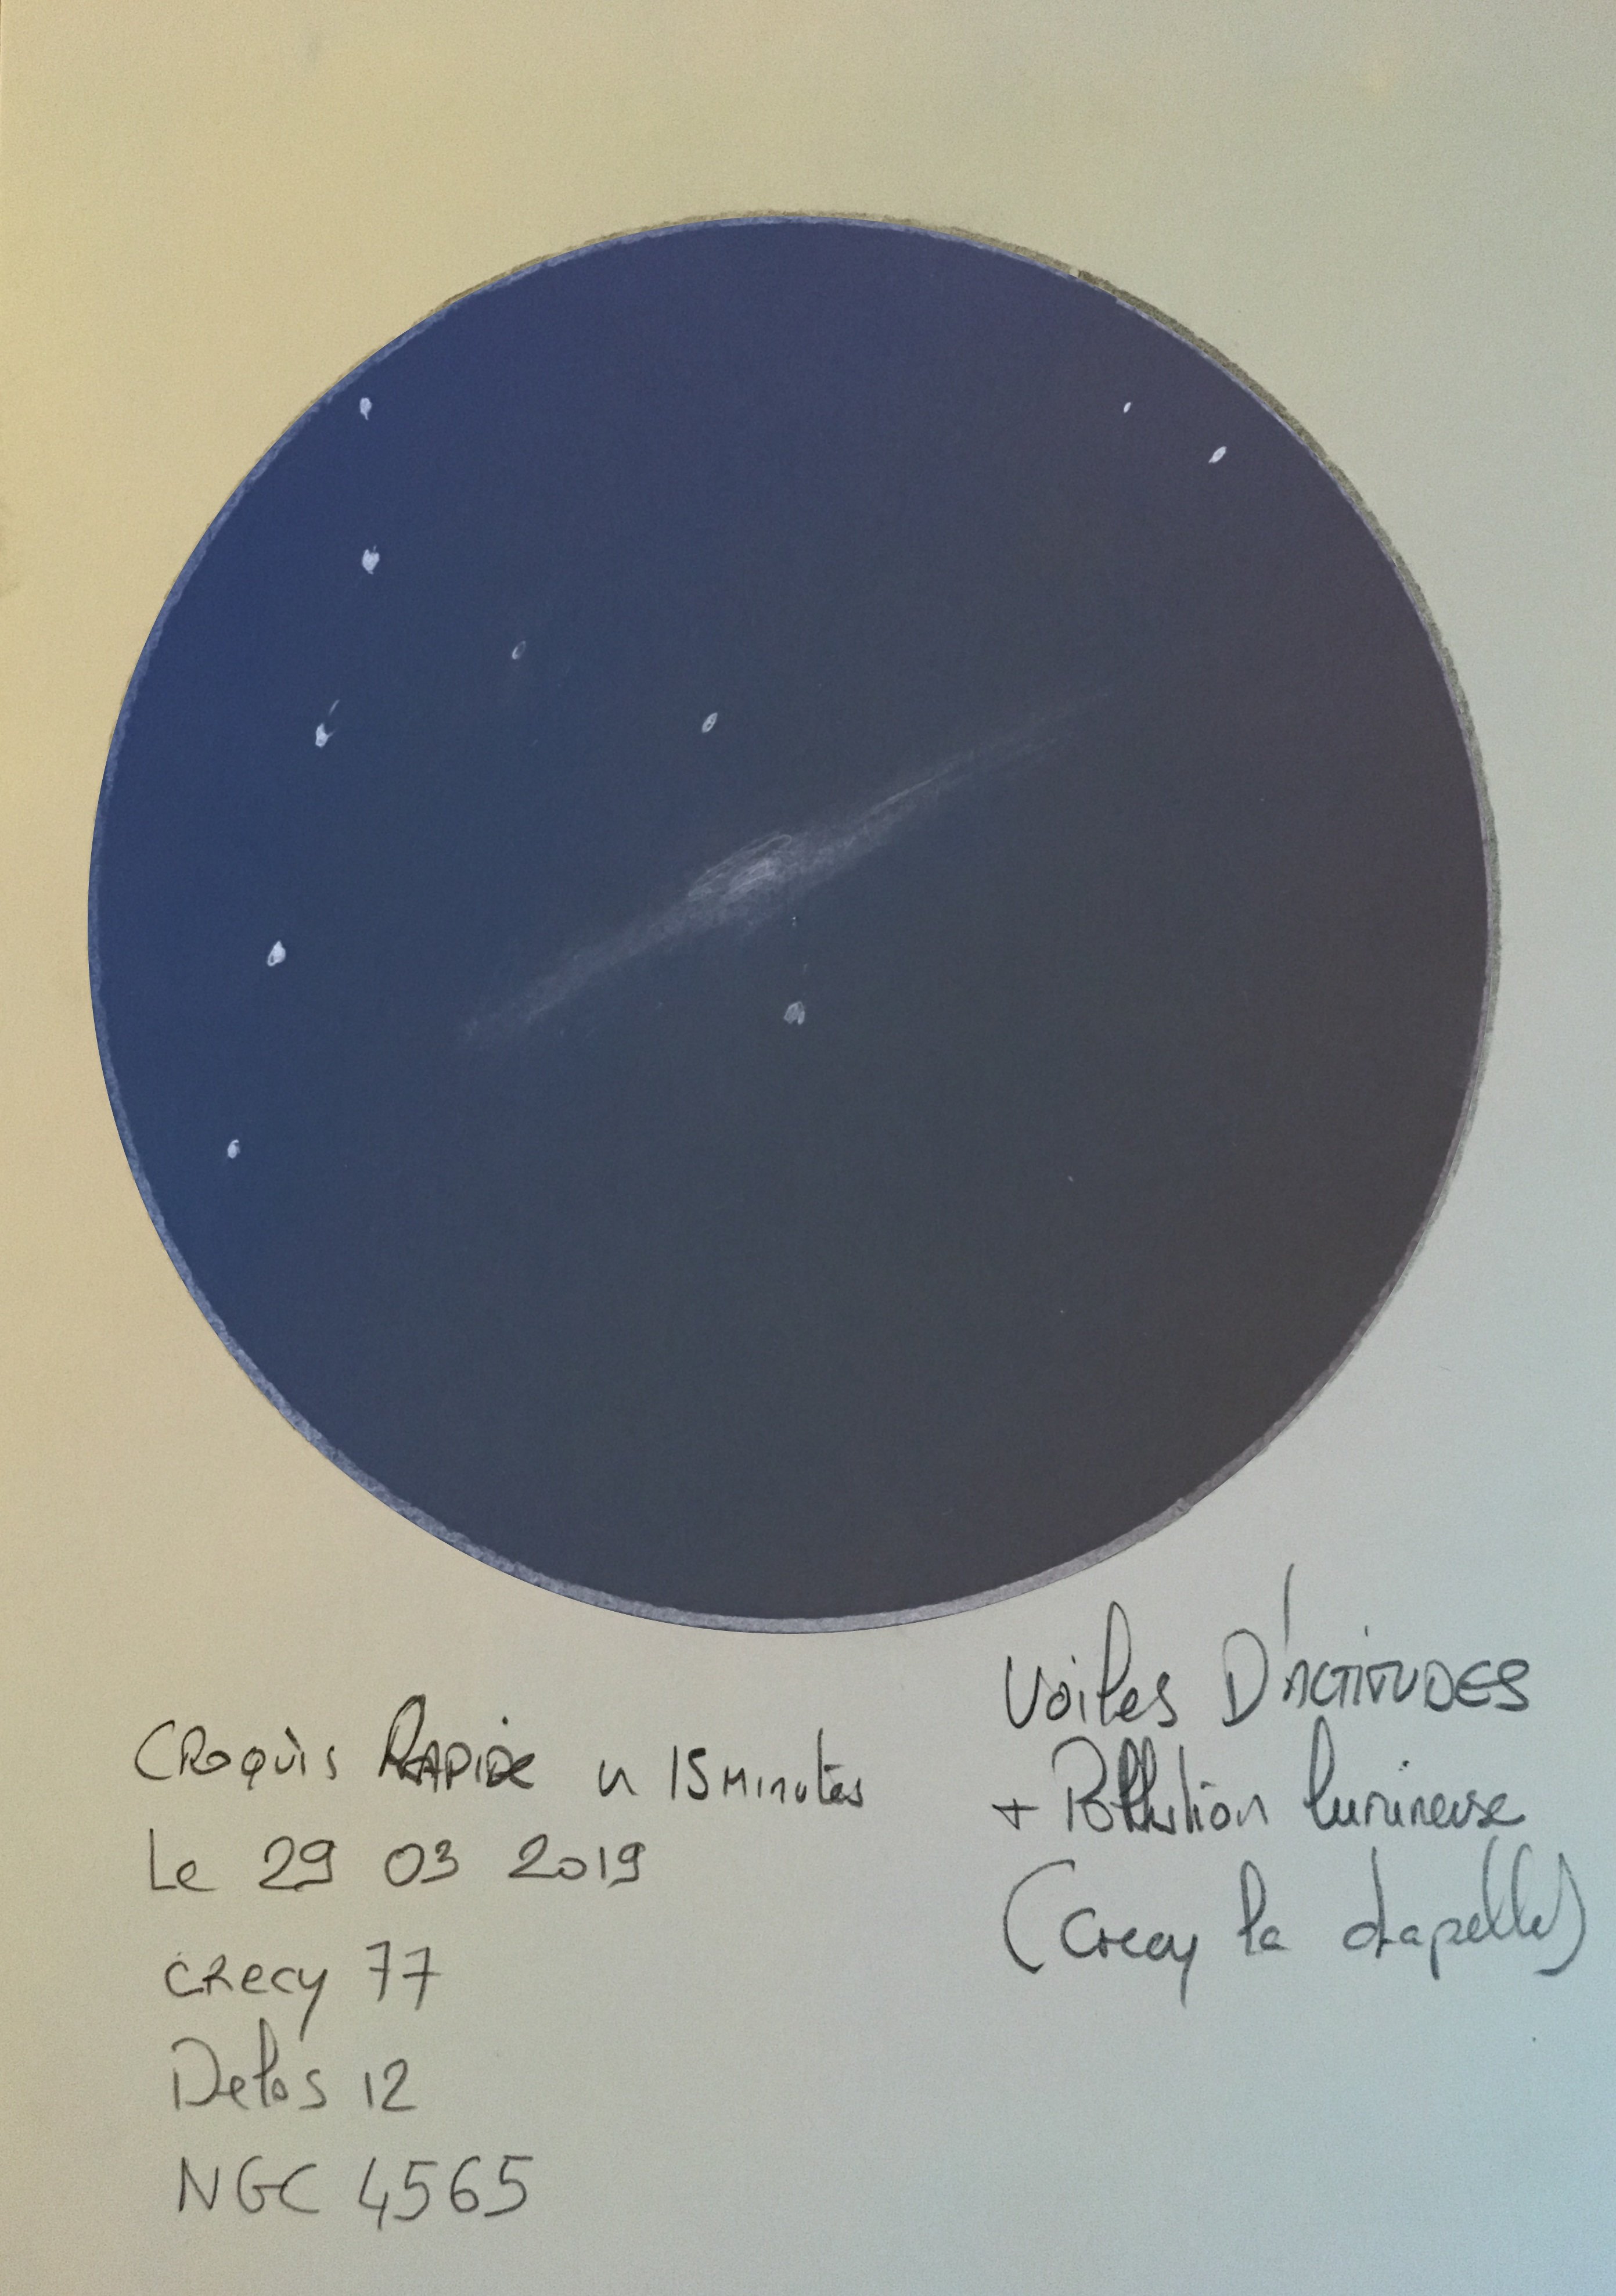 CROQUIS RAPIDE 15 Minutes
Le 29 03 2019
CRECY 77
Delos 12
NGC 4565
Voiles D'ACTITUDES
+ Pollution lumineuse
(Crecy la chapelle)